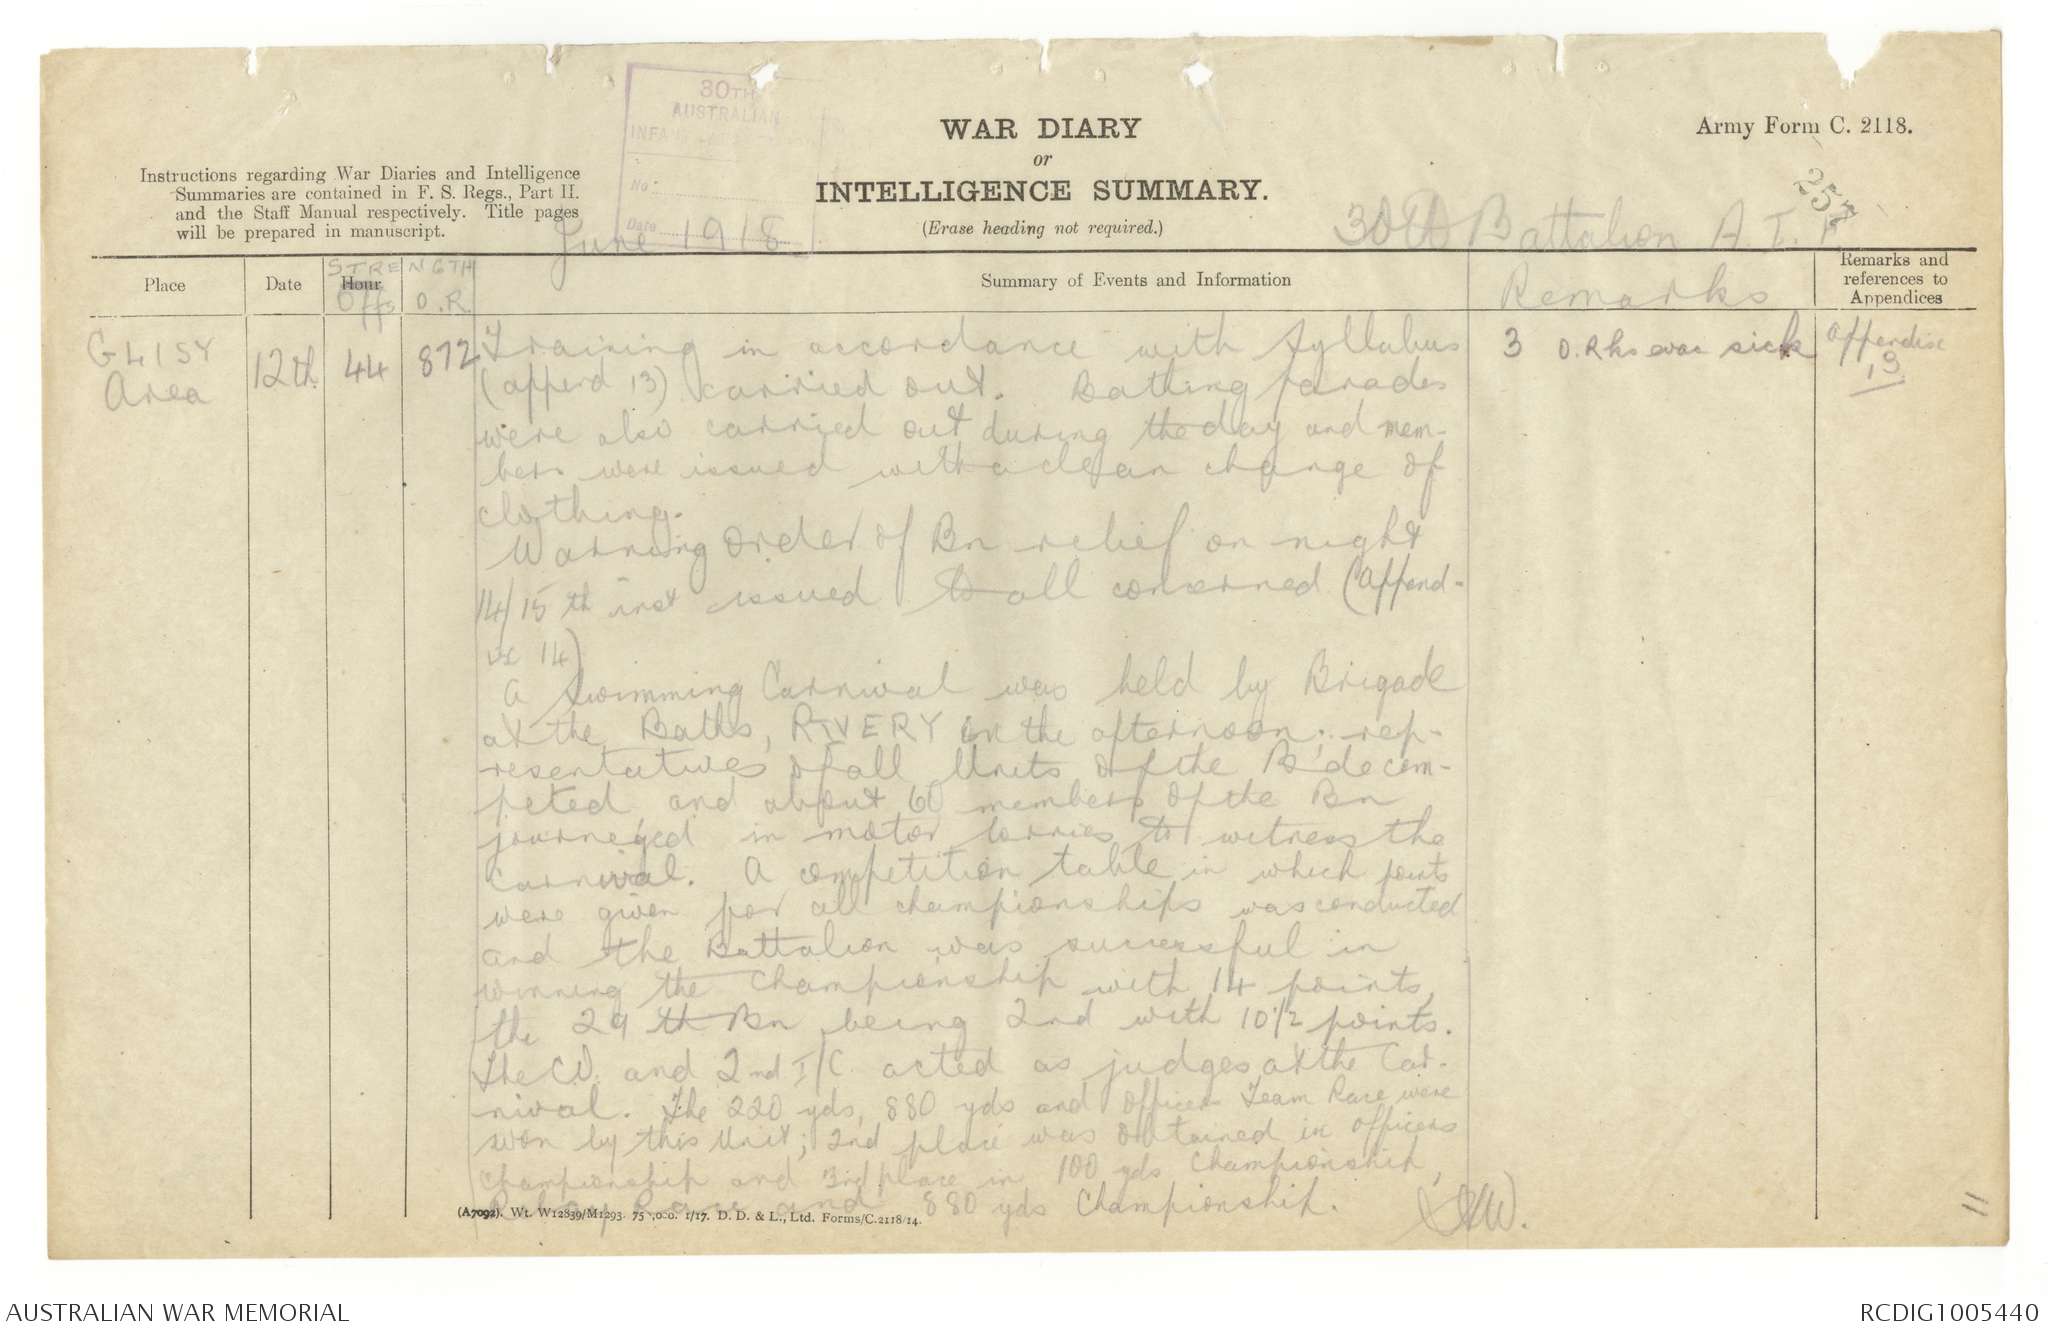 30TH
AUSTRALIAN
No.
Date
WAR DIARY
or
INTELLIGENCE SUMMARY.
(Erase heading not required.)
Army Form C. 2118.
257
Instructions regarding War Diaries and Intelligence
Summaries are contained in F. S. Regs., Part II.
and the Staff Manual respectively. Title pages
will be prepared in manuscript.
June 1918
30th Battalion A.I.F.
Place
Date
STRENGTH
Hour
Offs O.R
Summary of Events and Information
Remarks
Remarks and
references to
Appendices
GLISY
Area
12th
44
872
Training in accordance with Syllabus
(append 13) carried out. Bathing parades
were also carried out during the day and mem-
bers were issued with a clean change of
clothing.
Warning Order of Bn relief on night
14/15th inst issued to all concerned (append-
ix 14)
A Swimming Carnival was held by Brigade
at the Baths, RIVERY in the afternoon; rep-
resentatives of all Units of the B'de com-
peted and about 60 members of the Bn
journeyed in motor lorries to witness the
Carnival. A competition table in which points
were given for all championships was conducted
and the Battalion was successful in
winning the Championship with 14 points,
the 29th Bn being 2nd with 10½ points.
The C.O. and 2nd I/C acted as judges at the Car-
nival. The 220 yds, 880 yds and Officers Team Race were
won by this Unit; 2nd place was obtained in officers
Championship and 3rd place in 100 yds Championship,
Relay Race and 880 yds Championship.
3 O.Rks evac sick
Appendix
13
(A7092). Wt. W12839/M1293. 75 ,0.0. 1/17. D. D. & L., Ltd. Forms/C.2118/14.
11
AUSTRALIAN WAR MEMORIAL
RCDIG1005440